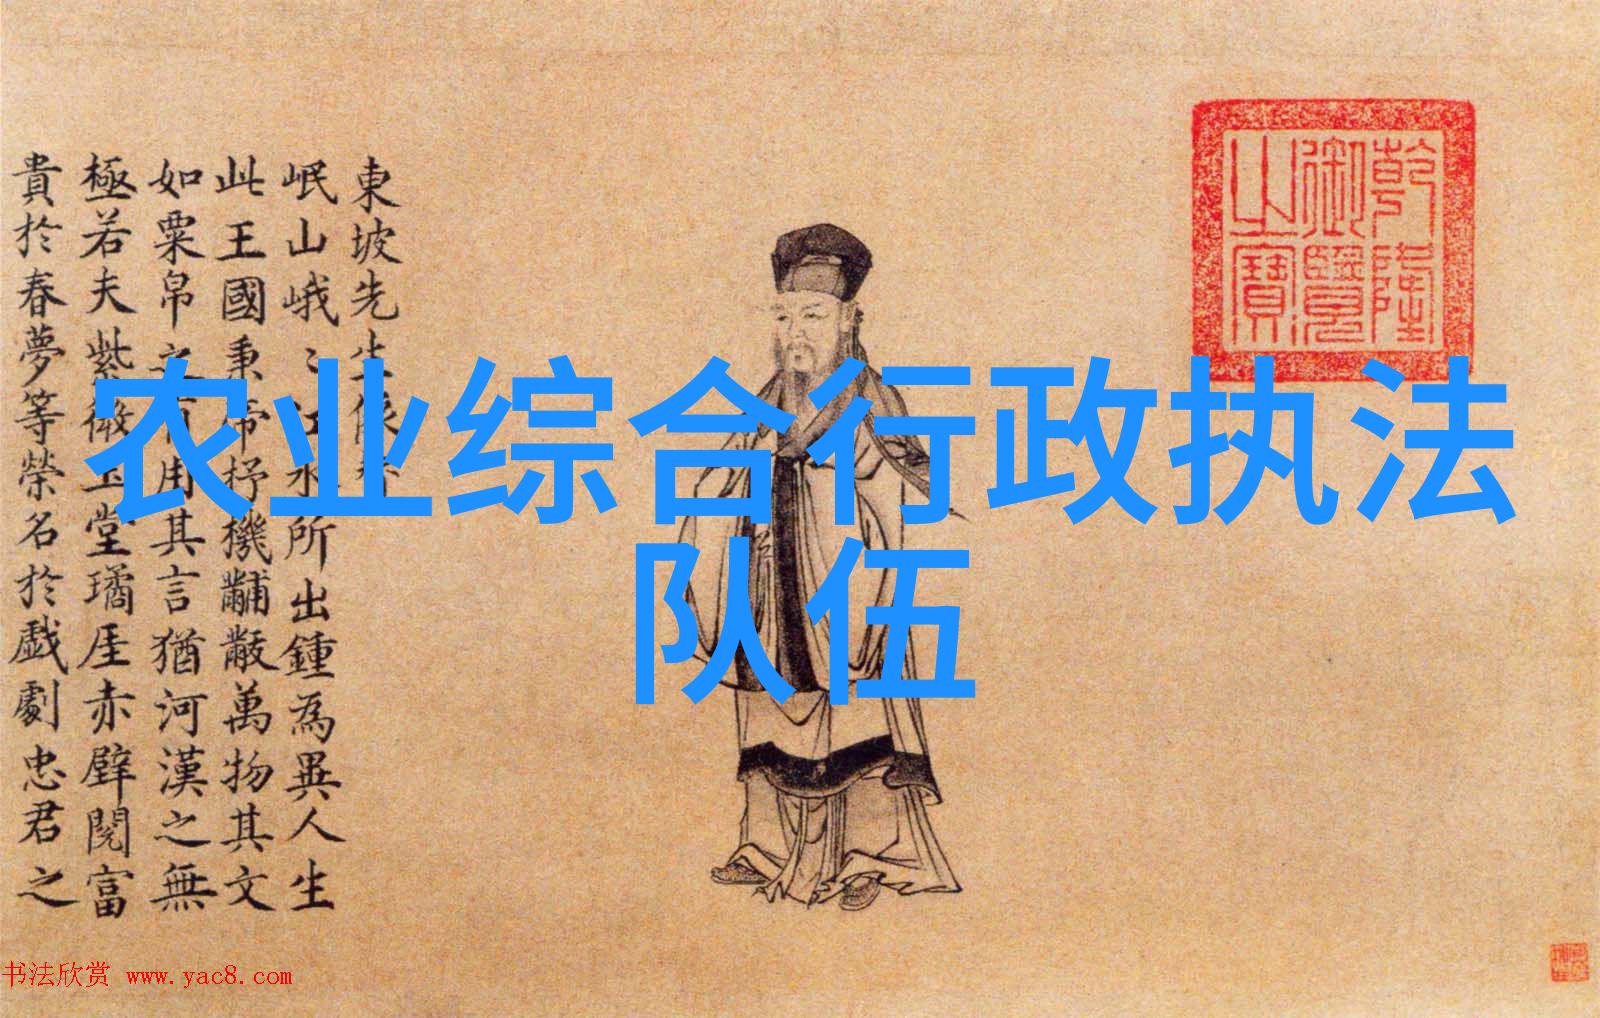 農业综合行政执法
队伍
東坡先生像
岷山峨〻江水所出鍾為異人生
此王國秉帝杼機黼黻萬物其文
如粟帛之有用其言猶河漢之無
極若夫紫微玉堂璚厓赤壁閱富
貴於春夢等榮名於戲劇忠君之
乾隆
御覽
之寶
书法欣赏 www.yac8.com